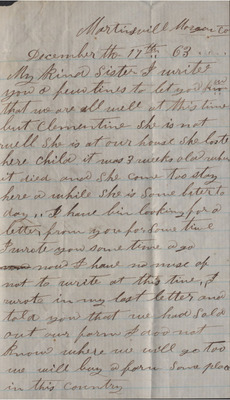 Martinsvill Morgan Co
December th 17th 63
My kind Sister I write
you a few lines to let you know
that we are all well at this time
but Clementine She is not
well She is at our house She loste
here Child it was 3 weeks old when
it died and She come too stay
here a while She is Some better to
day,, I have bin looking for a
letter from you for Some time
I wrote you some time a go
now I have no nuse of
not to write at this time, I
wrote in my last letter and
told you that we had Sold
out our farm I doo not
know where we will go too
we will buy a farm Some place
in this Country